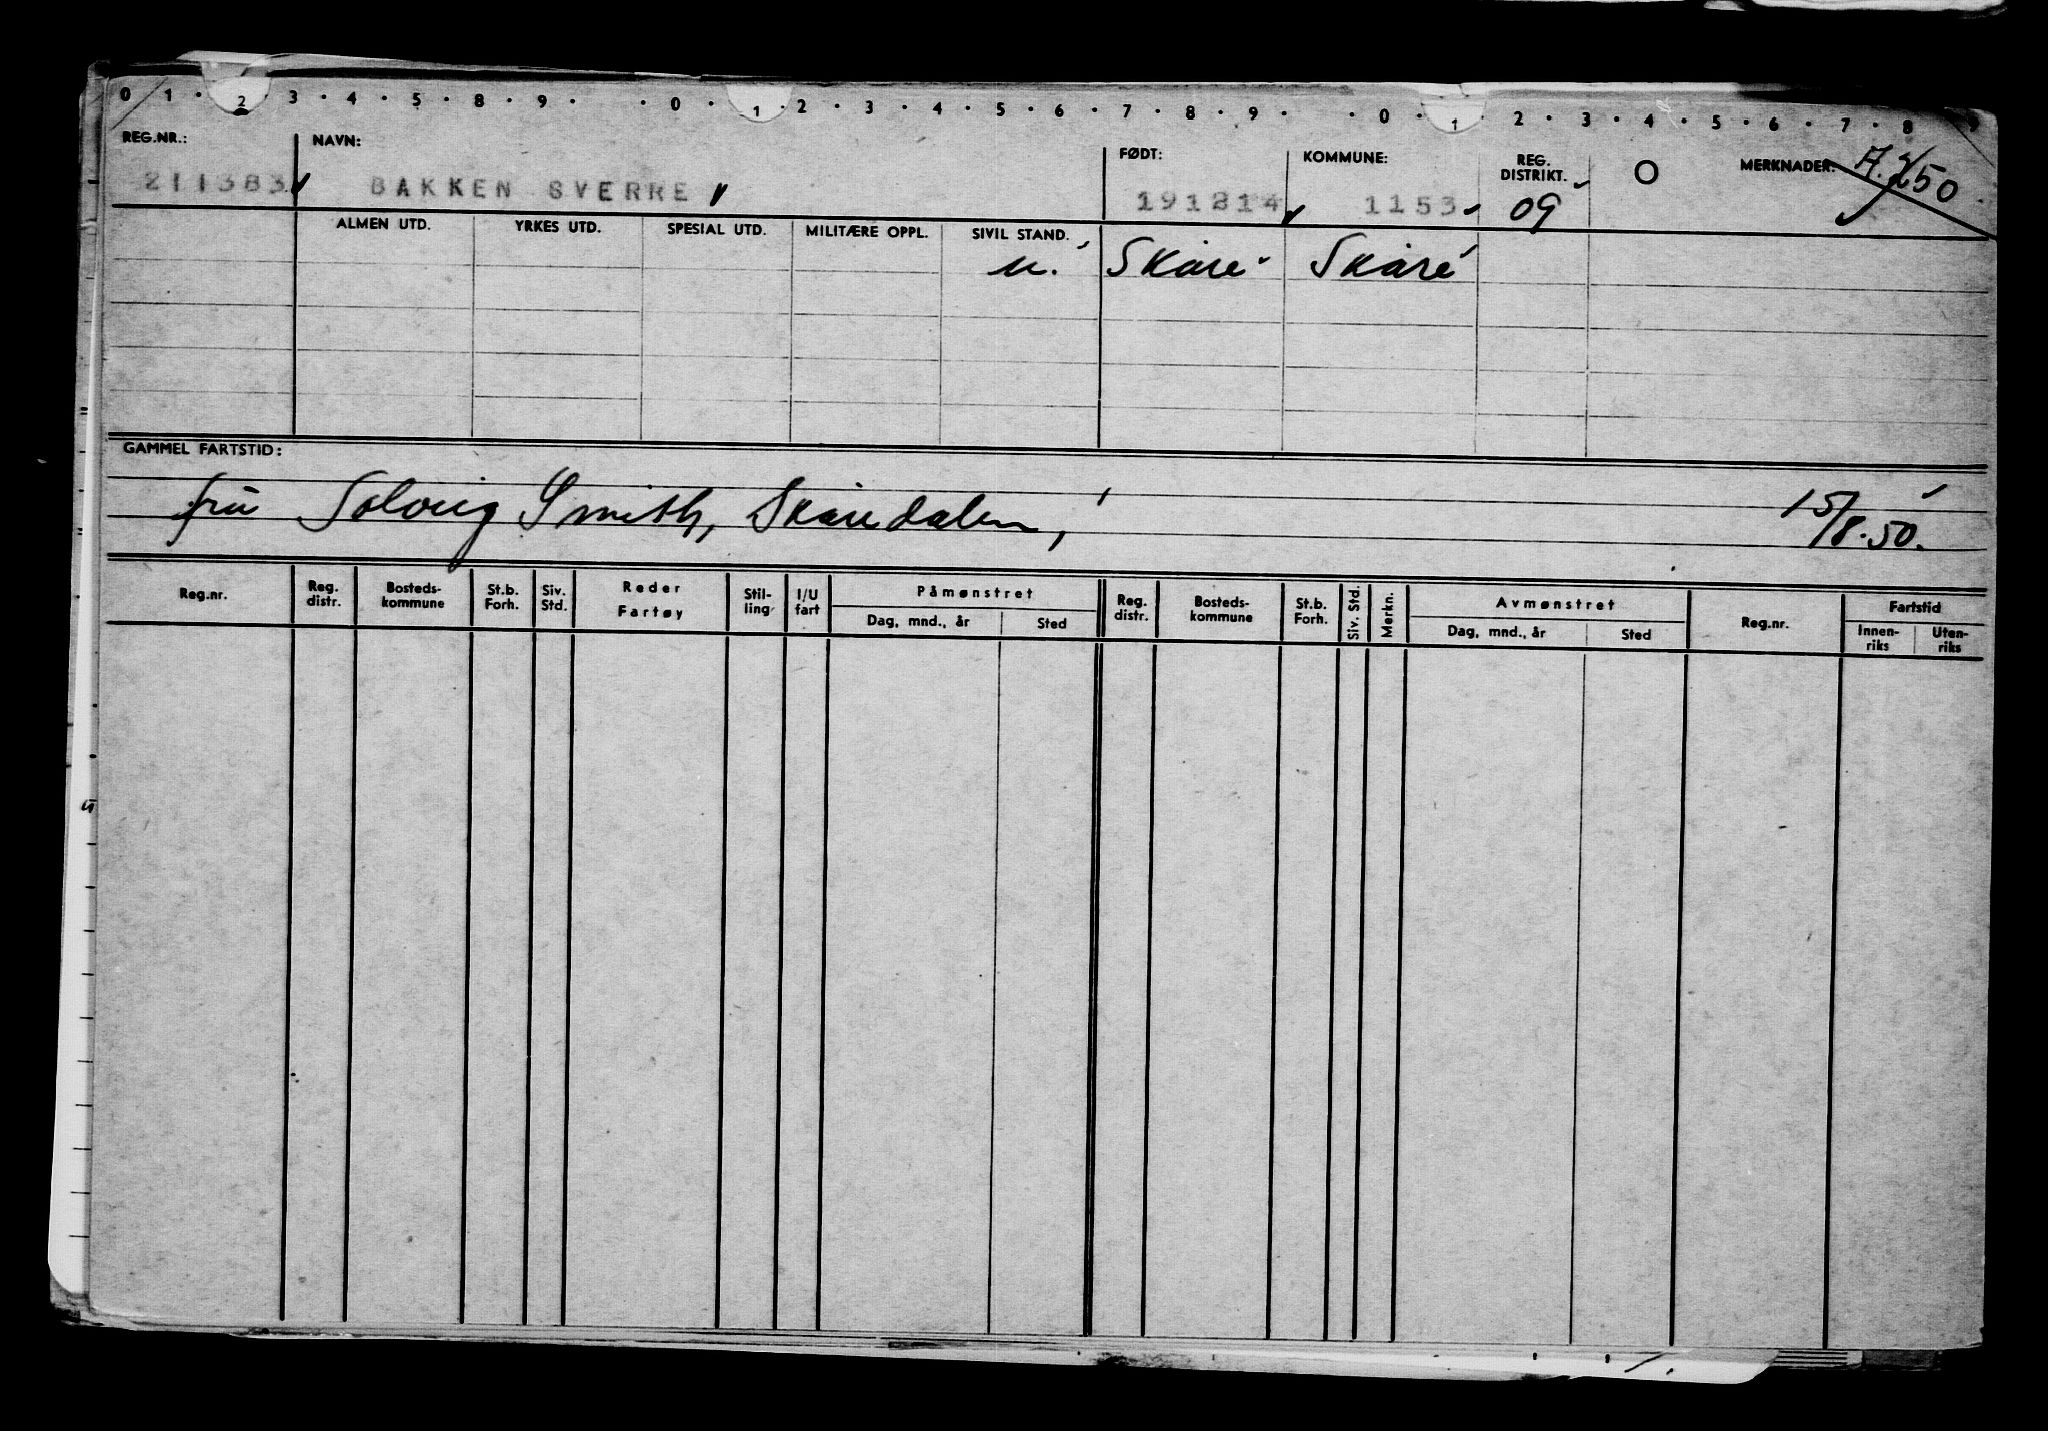 0 1 · 2 · 3 · 4 · 5 · 8 · 9 · · 0 · 1 · 2 · 3 · 4 · 5 · 6 · 7 · 8 · 9 · · 0 · 1 · 2 · 3 · 4 · 5 · 6 · 7 · 8 · 9
REG.NR.: NAVN: FØDT: KOMMUNE: REG. DISTRIKT. O MERKNADER: A.
211383 BAKKEN SVERRE 191214 1153 09
ALMEN UTD. YRKES UTD. SPESIAL UTD. MILITÆRE OPPL. SIVIL STAND.
u. Skåre Skåre
GAMMEL FARTSTID:
fru Solveig Smith, Skåredalen, 15/8.50.
Reg.nr. Reg. distr. Bosteds-kommune St.b. Forh. Siv. Std. Reder Fartøy Stil-ling I/U fart Påmønstret Reg. distr. Bosteds-kommune St.b. Forh. Siv. Std. Merkn. Avmønstret Reg.nr. Fartstid
Dag, mnd., år Sted Dag, mnd., år Sted Innen-riks Uten-riks